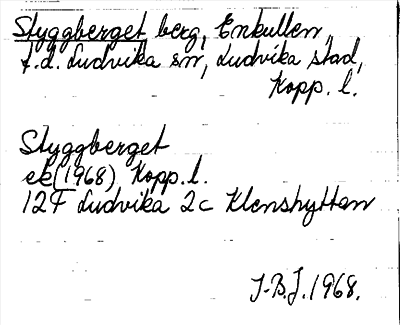 Styggberget berg, Enkullen,
f.d. Ludvika sn, Ludvika stad,
Kopp. l.
Styggberget
ek(1968) Kopp.l.
12F Ludvika 2c Klenshyttan
J-B.J.1968.